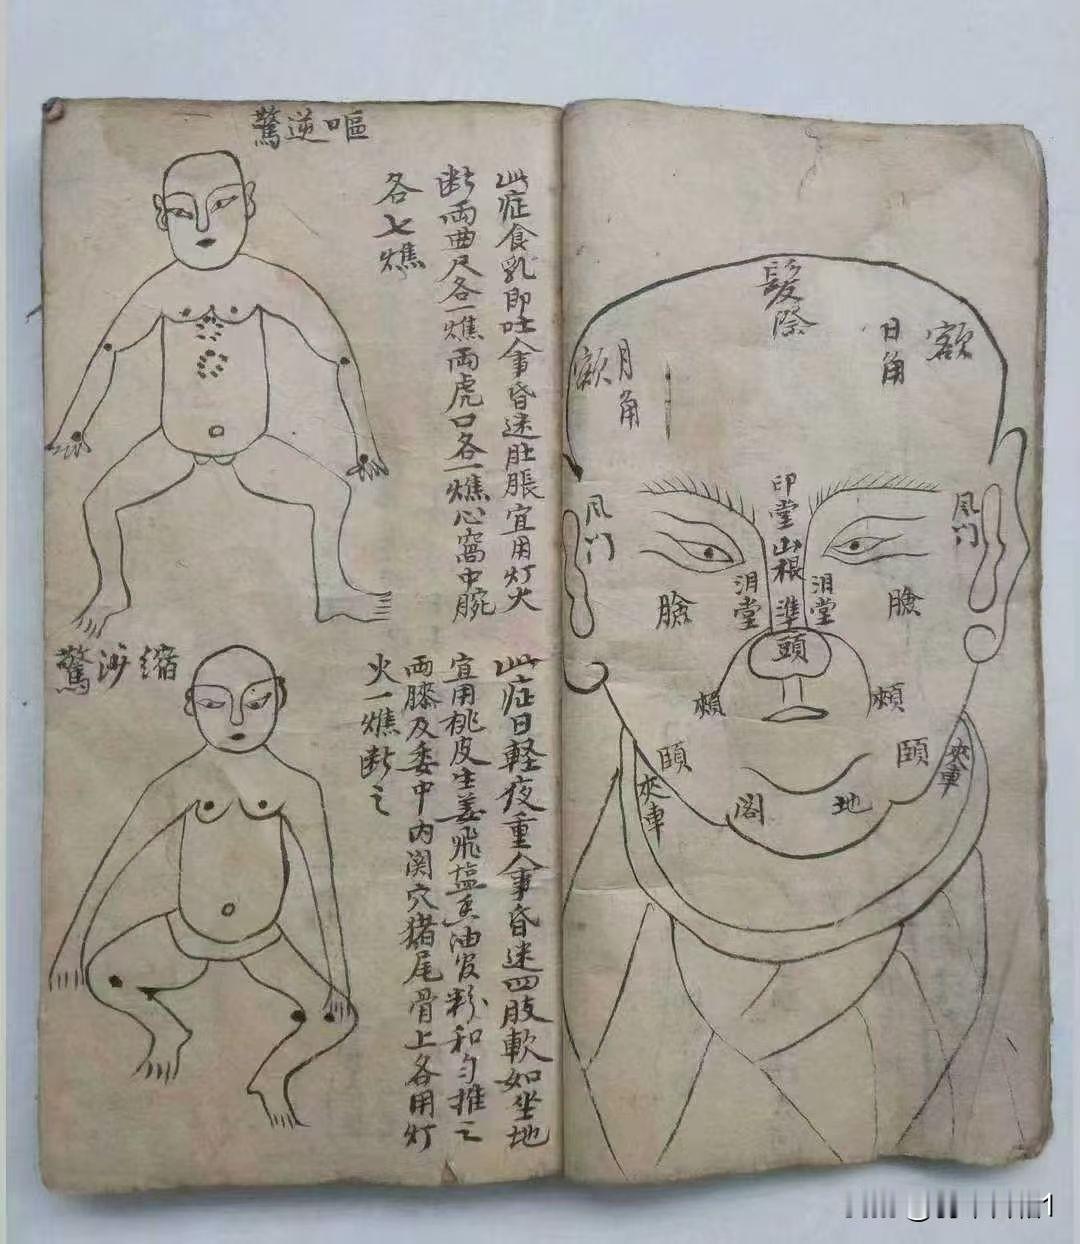 嘔逆驚
此症食乳即吐人事昏迷肚脹宜用灯火
断兩曲尺各一燋兩虎口各一燋心窩中腕
各七燋
縮沙驚
此症日軽夜重人事昏迷四肢軟如坐地
宜用桃皮生姜飛塩香油官粉和匀推之
兩膝及委中内関穴猪尾骨上各用灯
火一燋断之
髮際
額
日角
月角
額
印堂
山根
準頭
風门
風门
泪堂
泪堂
臉
臉
頰
頰
頤
頤
夾車
夾車
地
阁
1